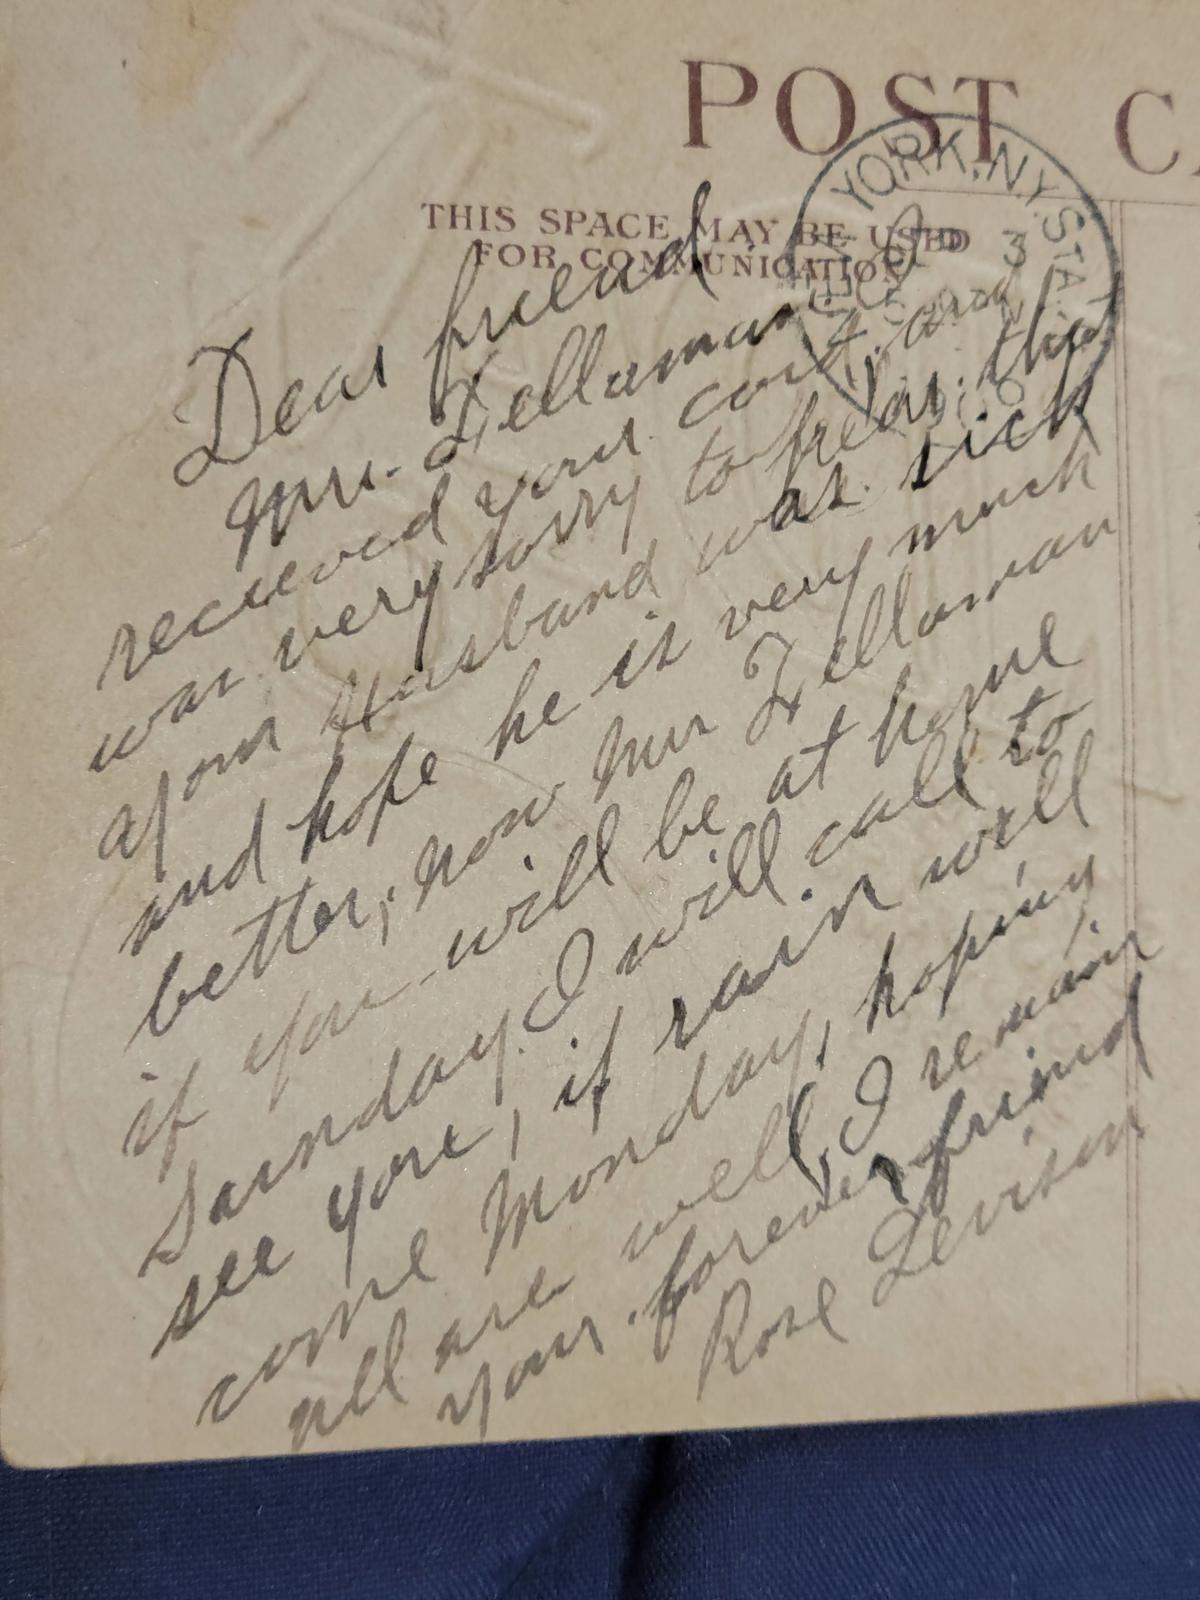 POST CA
THIS SPACE MAY BE USED
FOR COMMUNICATION
YORK, N.Y. STA.
3
Dear friend
Mrs. Fellaman I
recieved your card, and
was very sorry to hear, that
your Husband was sick
and hope he is very much
better; now Mrs Fellaman
if you will be at home
Sunday. I will call to
see you, if rain will
come Monday, hoping
all are well, I remain
your forever friend
Rose Levison